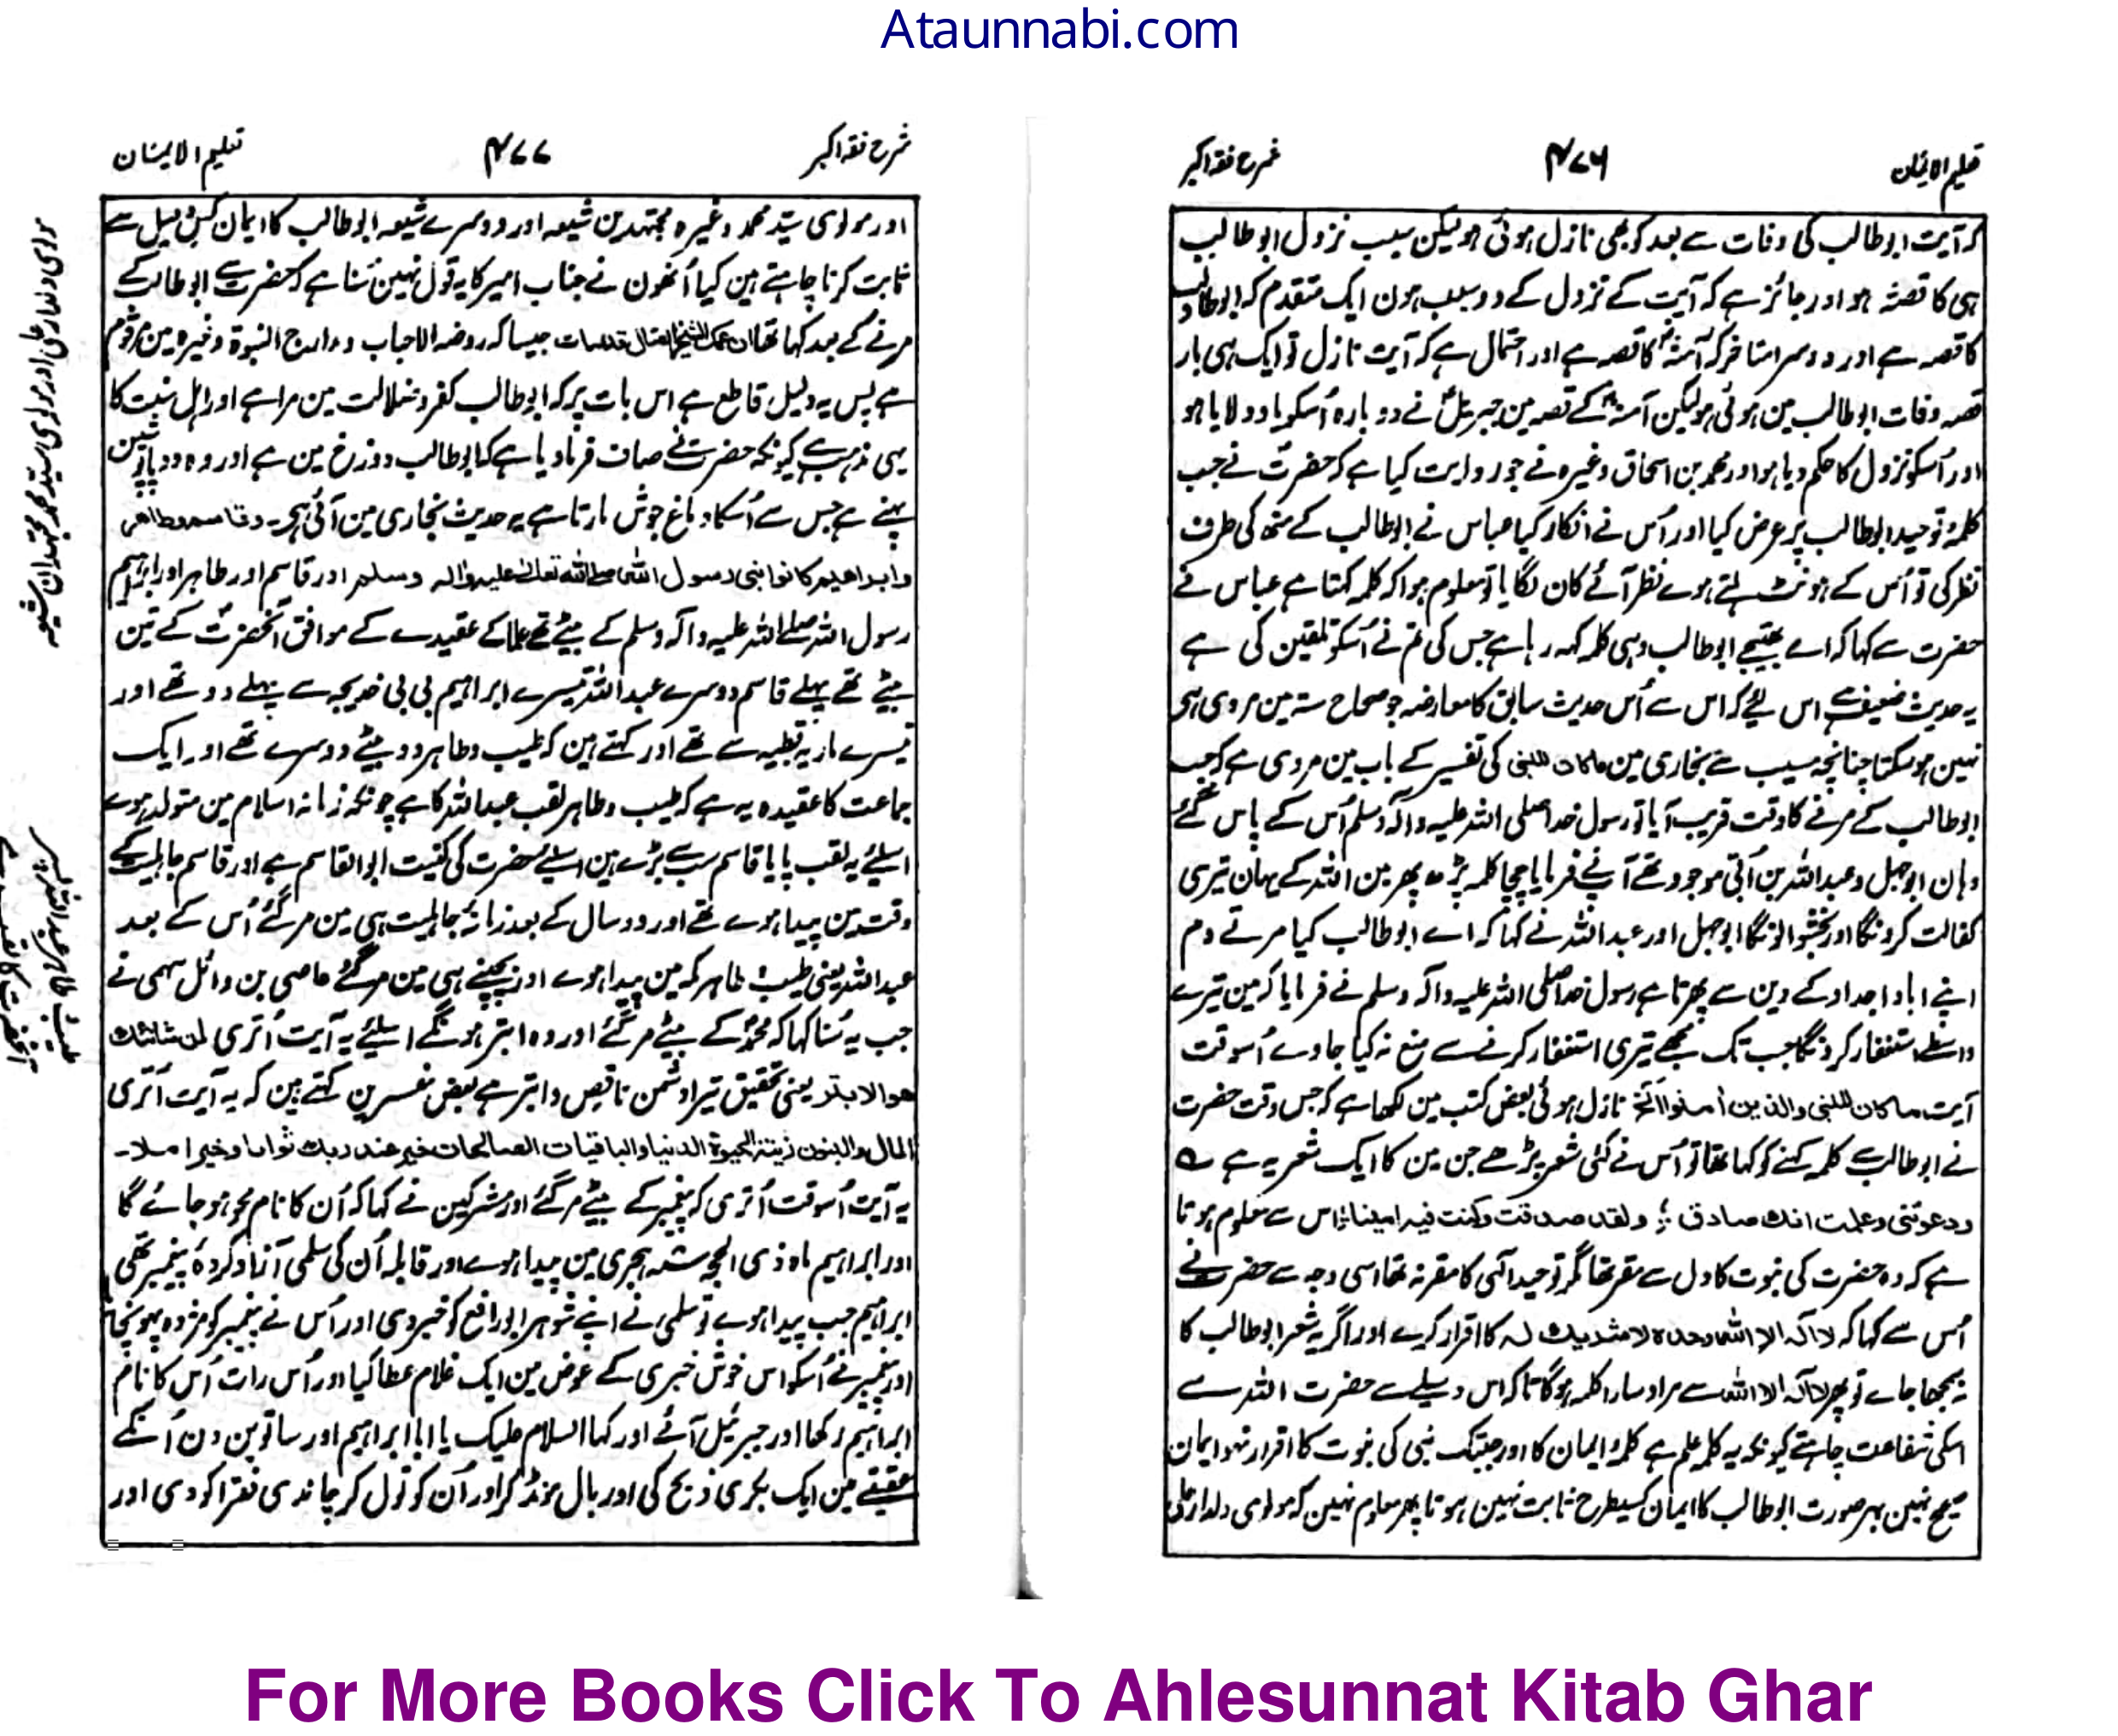 Ataunnabi.com
تعلیم الایمان
۴۷۶
شرح فقہ اکبر
کہ آیت ابوطالب کی وفات سے بعد کو بھی نازل ہوئی ہو لیکن سبب نزول ابوطالب
ہی کا قصہ ہو اور جائز ہے کہ آیت کے نزول کے دو سبب ہون ایک متقدم کہ ابوطالب
کا قصہ ہے اور دوسرا متاخر کہ آمنہ کا قصہ ہے اور احتمال ہے کہ آیت نازل تو ایک ہی بار
قصہ وفات ابوطالب مین ہوئی ہو لیکن آمنہ کے قصہ مین جبریل نے دوبارہ اُسکو یاد دلایا ہو
اور اُسکو نزول کا حکم دیا ہو اور محمد بن اسحاق وغیرہ نے جو روایت کیا ہے کہ حضرت نے جب
کلمۂ توحید ابوطالب پر عرض کیا اور اُس نے انکار کیا عباس نے ابوطالب کے منھ کی طرف
نظر کی تو اُس کے ہونٹ ہلتے ہوے نظر آئے کان لگایا تو معلوم ہوا کہ کلمہ کہتا ہے عباس نے
حضرت سے کہا کہ اے بھتیجے ابوطالب وہی کلمہ کہہ رہا ہے جس کی تم نے اُسکو تلقین کی ہے
یہ حدیث ضعیف ہے اس لیے کہ اس سے اُس حدیث سابق کا معارضہ جو صحاح ستہ مین مروی ہی
نہین ہوسکتا چنانچہ مسیب سے بخاری مین ماکان للنبی کی تفسیر کے باب مین مروی ہے کہ جب
ابوطالب کے مرنے کا وقت قریب آیا تو رسول خدا صلی اللہ علیہ وآلہ وسلم اُس کے پاس گئے
وہان ابوجہل و عبداللہ بن اُبی موجود تھے آپ نے فرمایا چچا کلمہ پڑھ پھر مین اللہ کے یہان تیری
کفالت کرونگا اور بخشوالونگا ابوجہل اور عبداللہ نے کہا کہ اے ابوطالب کیا مرتے دم
اپنے اباء اجداد کے دین سے پھرتا ہے رسول خدا صلی اللہ علیہ وآلہ وسلم نے فرمایا کہ مین تیرے
واسطے استغفار کرونگا جب تک مجھے تیری استغفار کرنے سے منع نہ کیا جاوے اُسوقت
آیت ماکان للنبی والذین اٰمنوا الخ نازل ہوئی بعض کتب مین لکھا ہے کہ جس وقت حضرت
نے ابوطالب سے کلمہ کہنے کو کہا تھا تو اُس نے کئی شعر پڑھے جن مین کا ایک شعر یہ ہے
ودعوتنی وعلمت انک صادق ؛ ولقد صدقت وکنت فیہ امینا ؛ اس سے معلوم ہوتا
ہے کہ وہ حضرت کی نبوت کا دل سے مقر تھا مگر توحید الٰہی کا مقر نہ تھا اسی وجہ سے حضرت نے
اُس سے کہا کہ لا الہ الا اللہ وحدہ لا شریک لہ کا اقرار کرے اور اگر یہ شعر ابوطالب کا
نہ سمجھا جاے تو پھر لا الہ الا اللہ سے مراد سارا کلمہ ہوگا تاکہ اس وسیلے سے حضرت اللہ سے
اسکی شفاعت چاہتے کیونکہ یہ کلمہ علم ہے کلمۂ ایمان کا اور جبتک نبی کی نبوت کا اقرار نہو ایمان
صحیح نہین بہر صورت ابوطالب کا ایمان کسیطرح ثابت نہین ہوتا پھر معلوم نہین کہ مولوی دلدار علی
شرح فقہ اکبر
۴۷۷
تعلیم الایمان
اور مولوی سید محمد وغیرہ مجتہدین شیعہ اور دوسرے شیعہ ابوطالب کا ایمان کس دلیل سے
ثابت کرنا چاہتے ہین کیا اُنھون نے جناب امیر کا یہ قول نہین سُنا ہے کہ حضرت سے ابوطالب کے
مرنے کے بعد کہا تھا ان عمک الشیخ الضال قدمات جیسا کہ روضہ الاحباب و مدارج النبوۃ وغیرہ مین مرقوم
ہے پس یہ دلیل قاطع ہے اس بات پر کہ ابوطالب کفر و ضلالت مین مرا ہے اور اہل سنت کا
یہی مذہب ہے کیونکہ حضرت نے صاف فرما دیا ہے کہ ابوطالب دوزخ مین ہے اور وہ دو پاپوشین
پہنے ہے جس سے اُسکا دماغ جوش مارتا ہے یہ حدیث بخاری مین آئی ہی وقاسم وطاھر
وابراھیم کانوا بنی رسول اللہ صلی اللہ تعالی علیہ والہ وسلم اور قاسم اور طاہر اور ابراہیم
رسول اللہ صلے اللہ علیہ وآلہ وسلم کے بیٹے تھے علما کے عقیدے کے موافق آنحضرت کے تین
بیٹے تھے پہلے قاسم دوسرے عبداللہ تیسرے ابراہیم بی بی خدیجہ سے پہلے دو تھے اور
تیسرے ماریہ قبطیہ سے تھے اور کہتے ہین کہ طیب و طاہر دو بیٹے دوسرے تھے اور ایک
جماعت کا عقیدہ یہ ہے کہ طیب و طاہر لقب عبداللہ کا ہے چونکہ زمانہ اسلام مین متولد ہوے
اسلیے یہ لقب پایا قاسم سب سے بڑے ہین اسلیے حضرت کی کنیت ابوالقاسم ہے اور قاسم جاہلیت کے
وقت مین پیدا ہوے تھے اور دو سال کے بعد زمانۂ جاہلیت ہی مین مر گئے اُس کے بعد
عبداللہ یعنی طیب طاہر مکہ مین پیدا ہوے اور بچپنے ہی مین مر گئے عاصی بن وائل سہمی نے
جب یہ سُنا کہا کہ محمد کے بیٹے مر گئے اور وہ ابتر ہوگئے اسلیے یہ آیت اُتری ان شانئک
ھو الابتر یعنی تحقیق تیرا دشمن ناقص و ابتر ہے بعض مفسرین کہتے ہین کہ یہ آیت اُتری
المال والبنون زینۃ الحیوۃ الدنیا والباقیات الصالحات خیر عند ربک ثوابا وخیر املا
یہ آیت اُسوقت اُتری کہ پیغمبر کے بیٹے مر گئے اور مشرکین نے کہا کہ اُن کا نام محو ہو جائے گا
اور ابراہیم ماہ ذی الحجہ سنہ ہجری مین پیدا ہوے اور قابلہ اُن کی سلمی آزاد کردۂ پیغمبر تھی
ابراہیم جب پیدا ہوے تو سلمی نے اپنے شوہر ابو رافع کو خبر دی اور اُس نے پیغمبر کو مژدہ پہونچایا
اور پیغمبر نے اُسکو اس خوش خبری کے عوض مین ایک غلام عطا کیا اور اُس رات اُس کا نام
ابراہیم رکھا اور جبرئیل آئے اور کہا السلام علیک یا ابا ابراہیم اور ساتوین دن اُنکے
عقیقے مین ایک بکری ذبح کی اور بال مونڈ کر اور اُن کو تول کر چاندی فقرا کو دی اور
مولوی دلدار علی اور مولوی سید محمد مجتہدان شیعہ
For More Books Click To Ahlesunnat Kitab Ghar